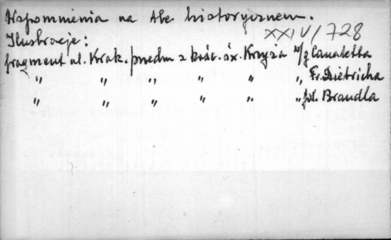 Wspomnienia na tle historycznem.
XXIV/728
Ilustracje:
fragment ul. Krak. przedm z kośc. św. Krzyża w/g Canaletta
" " " " " " Fr. Dietricha
" " " " " " fot. Brandla